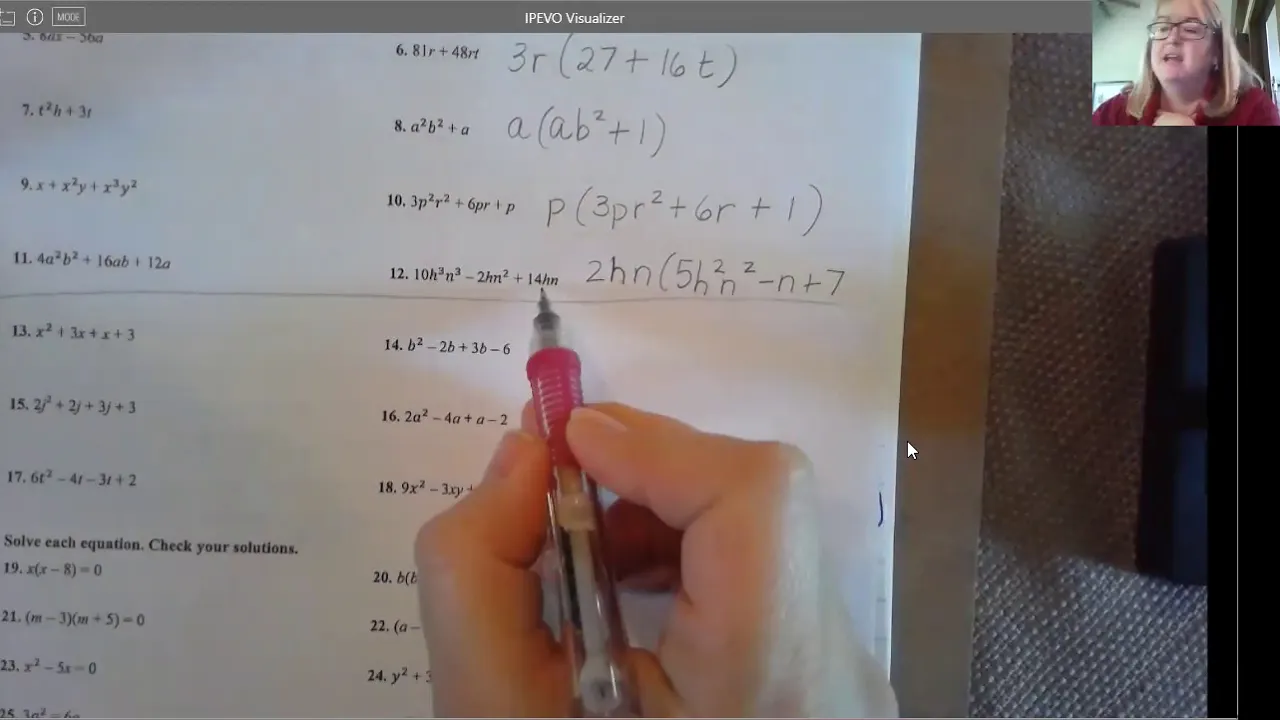 MODE
IPEVO Visualizer
5. 8ax – 56a
6. 81r + 48rt 3r(27 + 16t)
7. t²h + 3t
8. a²b² + a a(ab² + 1)
9. x + x²y + x³y²
10. 3p²r² + 6pr + p p(3pr² + 6r + 1)
11. 4a²b² + 16ab + 12a
12. 10h³n³ – 2hn² + 14hn 2hn(5h²n² – n + 7
13. x² + 3x + x + 3
14. b² – 2b + 3b – 6
15. 2j² + 2j + 3j + 3
16. 2a² – 4a + a – 2
17. 6t² – 4t – 3t + 2
18. 9x² – 3xy +
Solve each equation. Check your solutions.
19. x(x – 8) = 0
20. b(b
21. (m – 3)(m + 5) = 0
22. (a –
23. x² – 5x = 0
24. y² + 3
25. 3a² = 6a